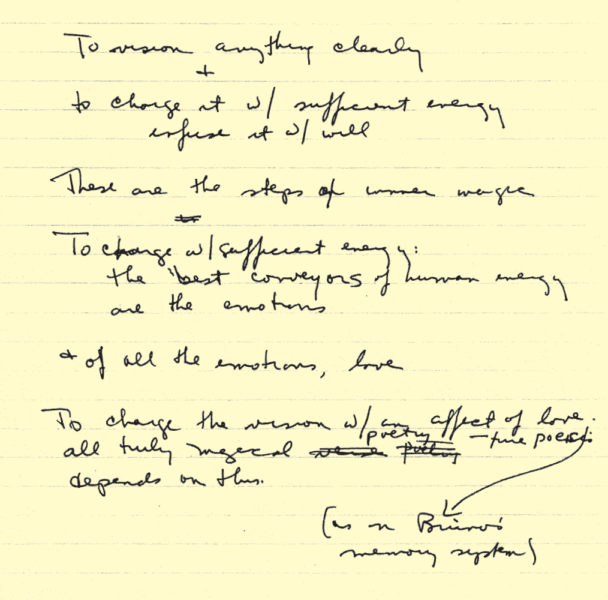 To vision anything clearly
+
to charge it w/ sufficient energy
infuse it w/ will
These are the steps of inner magic
To charge w/ sufficient energy:
the "best conveyors of human energy
are the emotions
+ of all the emotions, love
To charge the vision w/ an affect of love.
all truly magical poetry — true poesis
depends on this.
(as in Bruno's
memory system)